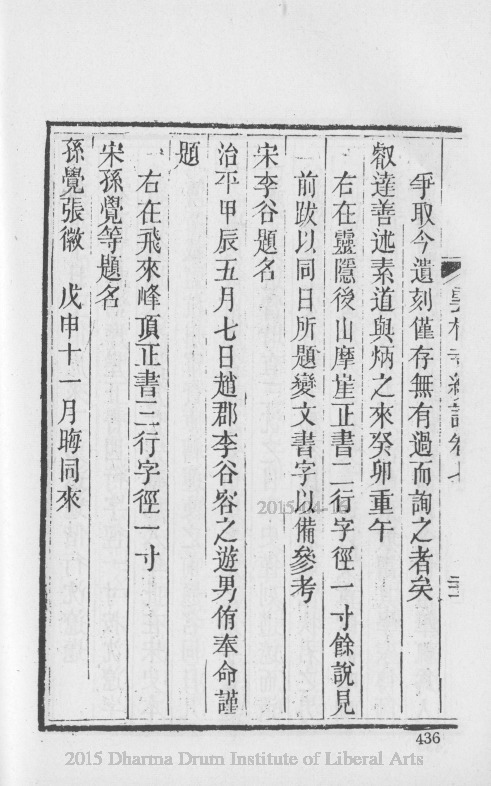 爭取今遺刻僅存無有過而詢之者矣
叡達善述素道與炳之來癸卯重午
右在靈隱後山摩崖正書二行字徑一寸餘說見
前跋以同日所題變文書字以備參考
宋李谷題名
治平甲辰五月七日趙郡李谷容之遊男侑奉命謹
題
右在飛來峰頂正書三行字徑一寸
宋孫覺等題名
孫覺張徽 戊申十一月晦同來
436
2015 Dharma Drum Institute of Liberal Arts